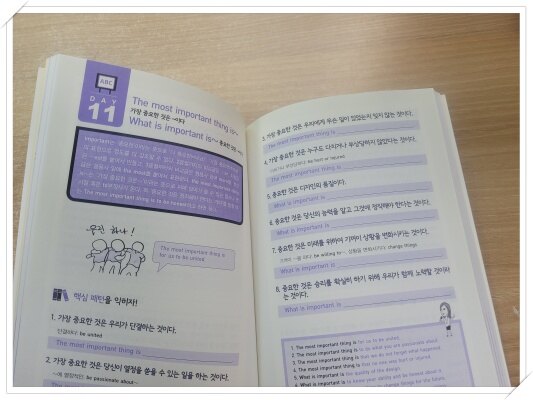 ABC
DAY
11
The most important thing is~
가장 중요한 것은 ~이다
What is important is~
우린 하나!
The most important thing is
for us to be united.
핵심 패턴을 익히자!
1. 가장 중요한 것은 우리가 단결하는 것이다.
단결하다: be united
The most important thing is
2. 가장 중요한 것은 당신이 열정을 쏟을 수 있는 일을 하는 것이다.
~에 열정적인: be passionate about~
The most important thing is
3. 가장 중요한 것은 우리에게 무슨 일이 있었는지 잊지 않는 것이다.
The most important thing is
4. 가장 중요한 것은 누구도 다치거나 부상당하지 않았다는 것이다.
be hurt or injured
The most important thing is
5. 중요한 것은 디자인의 품질이다.
What is important is
6. 중요한 것은 당신의 능력을 알고 그것에 정직해야 한다는 것이다.
What is important is
7. 중요한 것은 미래를 위하여 기꺼이 상황을 변화시키는 것이다.
기꺼이 ~을 하다: be willing to~, 상황을 변화시키다: change things
What is important is
8. 중요한 것은 승리를 확실히 하기 위해 우리가 함께 노력할 것이라
는 것이다.
What is important is
1. The most important thing is for us to be united.
2. The most important thing is to do what you are passionate about.
3. The most important thing is that we do not forget what happened.
4. The most important thing is that no one was hurt or injured.
5. What is important is the quality of the design.
6. What is important is to know your ability and be honest about it.